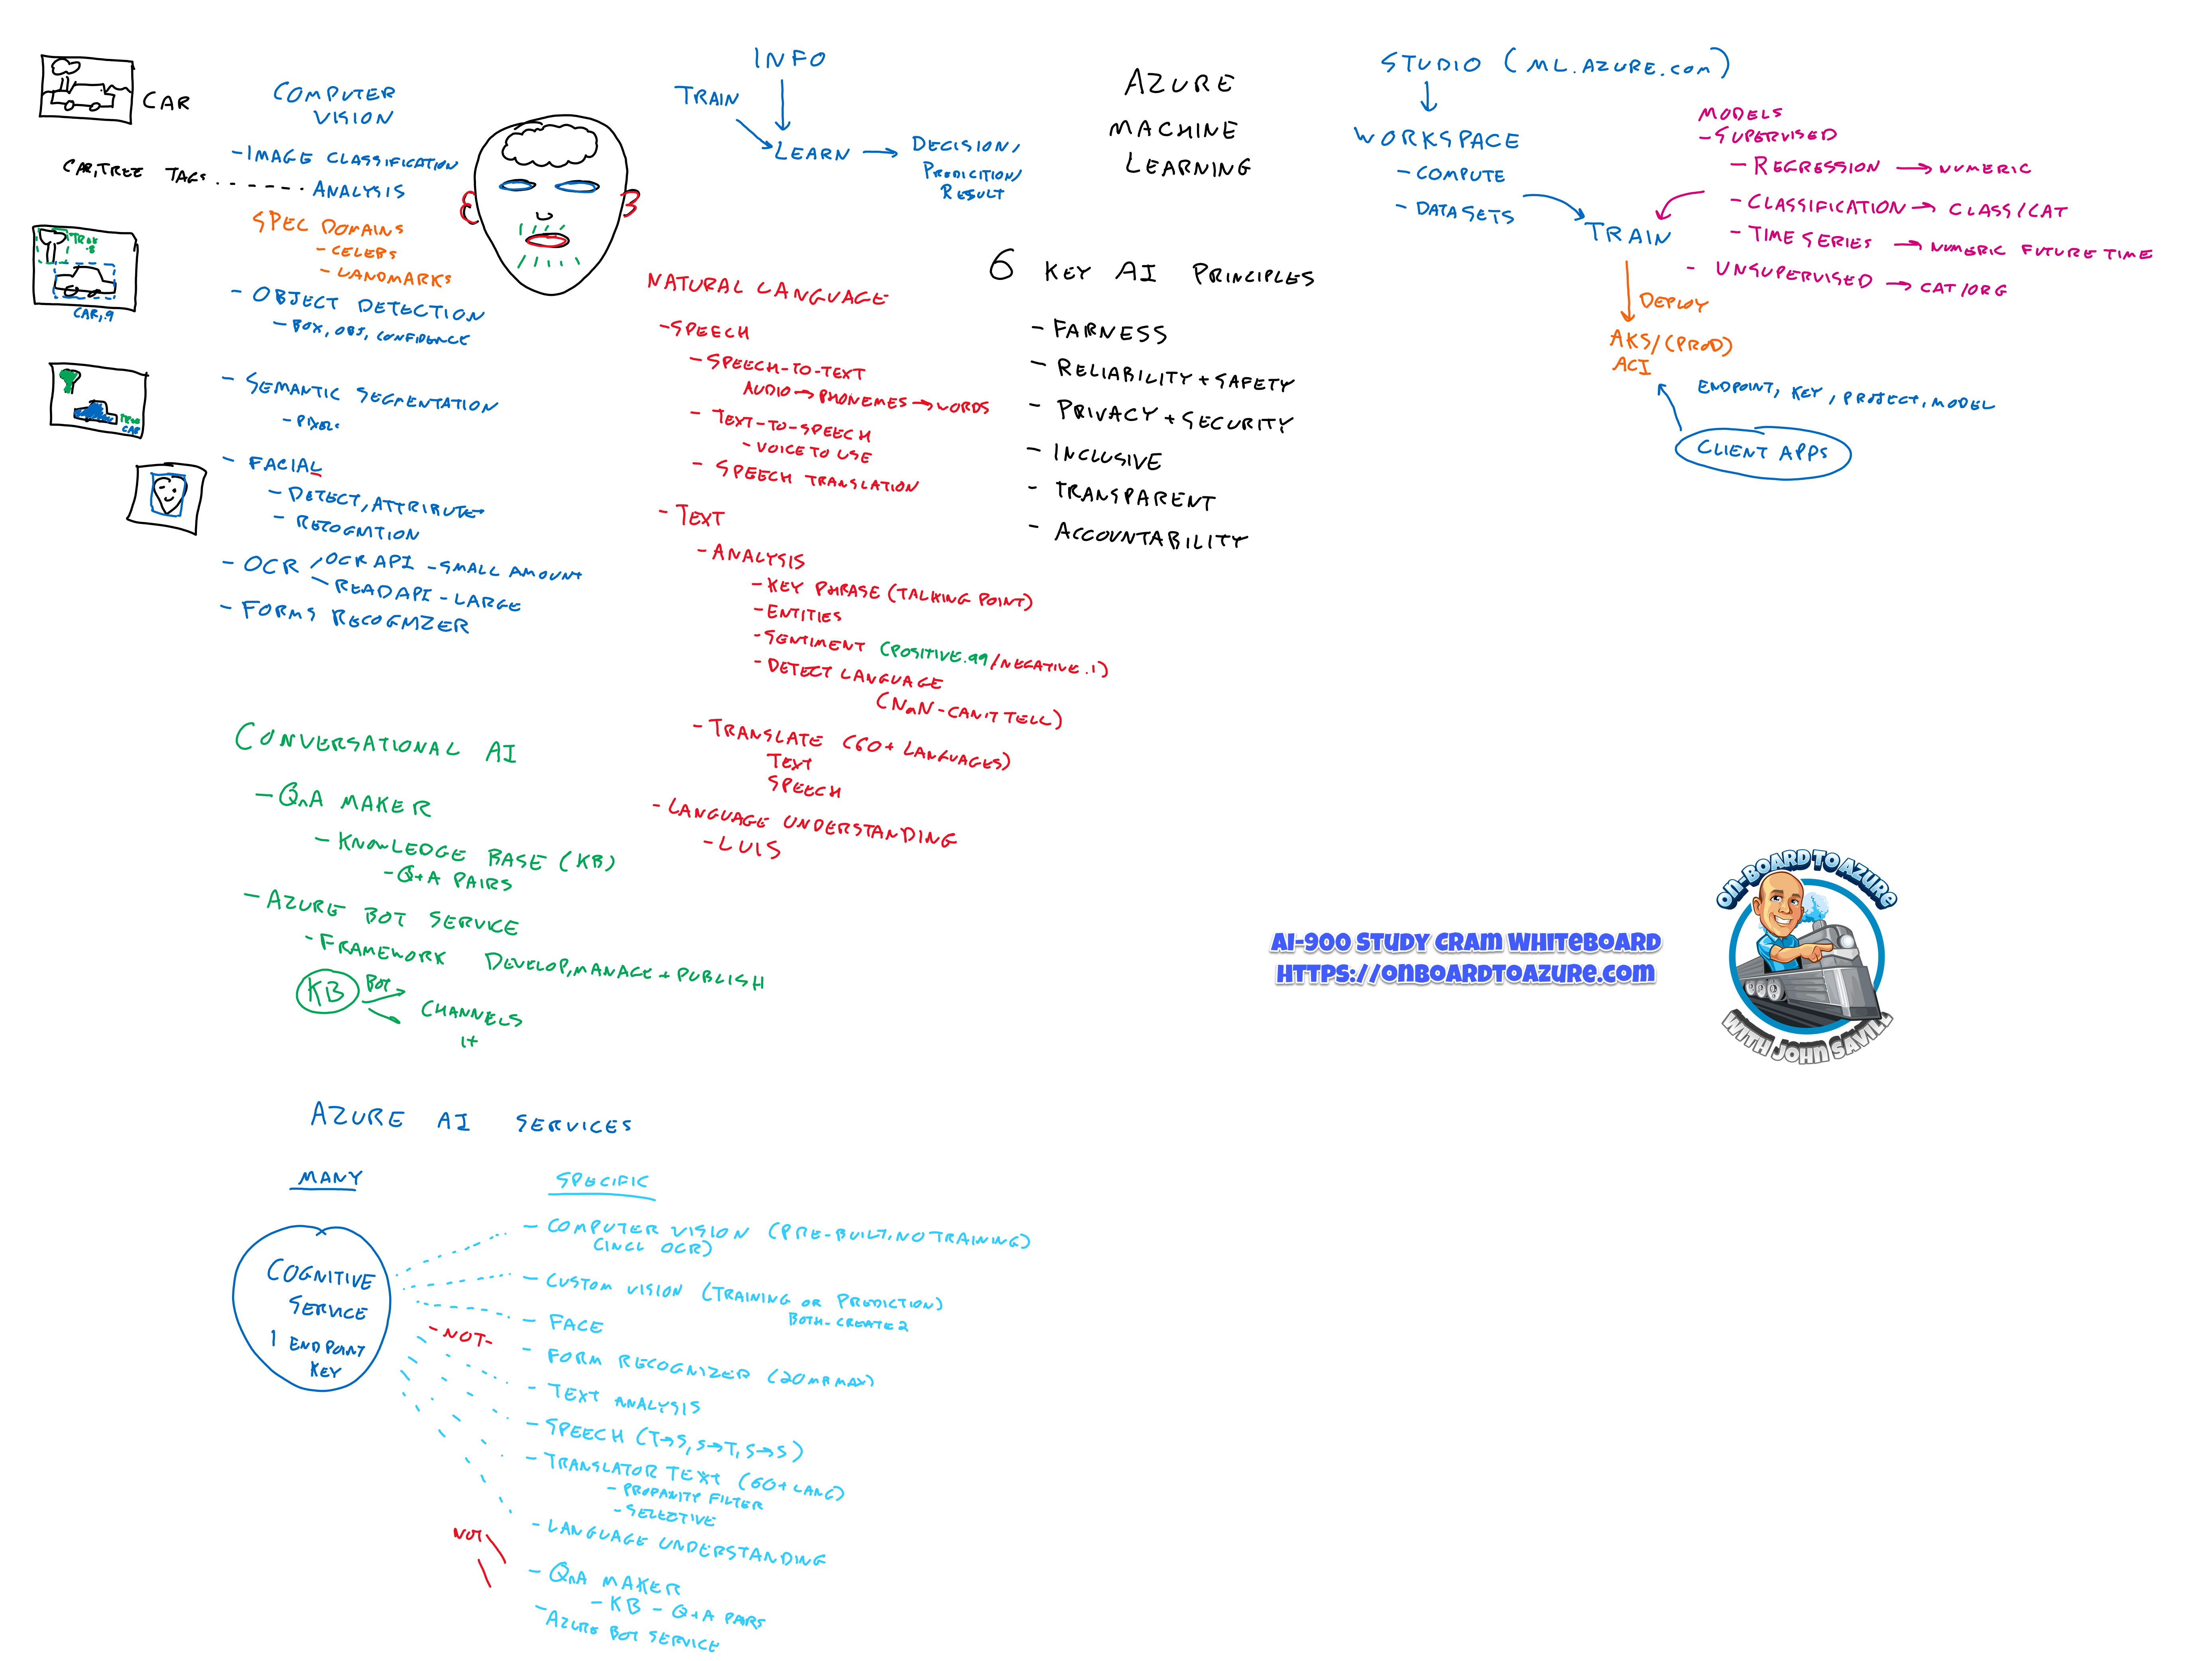 CAR
COMPUTER
VISION
-IMAGE CLASSIFICATION
CAR,TREE TAGS
ANALYSIS
SPEC DOMAINS
- CELEBS
- LANDMARKS
TREE
.8
CAR,.9
- OBJECT DETECTION
- BOX, OBJ, CONFIDENCE
TREE
CAR
- SEMANTIC SEGMENTATION
- PIXELS
- FACIAL
- DETECT, ATTRIBUTES
- RECOGNITION
- OCR
OCR API - SMALL AMOUNT
READ API - LARGE
- FORMS RECOGNIZER
INFO
TRAIN
LEARN
DECISION/
PREDICITION/
RESULT
NATURAL LANGUAGE
-SPEECH
- SPEECH-TO-TEXT
AUDIO → PHONEMES → WORDS
- TEXT-TO-SPEECH
- VOICE TO USE
- SPEECH TRANSLATION
- TEXT
- ANALYSIS
- KEY PHRASE (TALKING POINT)
- ENTITIES
- SENTIMENT (POSITIVE.99/NEGATIVE.1)
- DETECT LANGUAGE
(NaN - CAN'T TELL)
- TRANSLATE (60+ LANGUAGES)
TEXT
SPEECH
- LANGUAGE UNDERSTANDING
- LUIS
AZURE
MACHINE
LEARNING
6 KEY AI PRINCIPLES
- FARNESS
- RELIABILITY + SAFETY
- PRIVACY + SECURITY
- INCLUSIVE
- TRANSPARENT
- ACCOUNTABILITY
STUDIO (ML.AZURE.COM)
WORKSPACE
- COMPUTE
- DATASETS
TRAIN
MODELS
- SUPERVISED
- REGRESSION → NUMERIC
- CLASSIFICATION → CLASS/CAT
- TIME SERIES → NUMERIC FUTURE TIME
- UNSUPERVISED → CAT/ORG
DEPLOY
AKS/(PROD)
ACI
ENDPOINT, KEY, PROJECT, MODEL
CLIENT APPS
CONVERSATIONAL AI
- QnA MAKER
- KNOWLEDGE BASE (KB)
- Q+A PAIRS
- AZURE BOT SERVICE
- FRAMEWORK DEVELOP, MANAGE + PUBLISH
KB
BOT
CHANNELS
1+
ON-BOARD TO AZURE
WITH JOHN SAVILL
AI-900 STUDY CRAM WHITEBOARD
HTTPS://ONBOARDTOAZURE.COM
AZURE AI SERVICES
MANY
SPECIFIC
COGNITIVE
SERVICE
1 ENDPOINT
KEY
- COMPUTER VISION (PRE-BUILT, NO TRAINING)
(INCL OCR)
- CUSTOM VISION (TRAINING OR PREDICTION)
BOTH - CREATE 2
- FACE
- NOT -
- FORM RECOGNIZER (20MB MAX)
- TEXT ANALYSIS
- SPEECH (T→S, S→T, S→S)
- TRANSLATOR TEXT (60+ LANG)
- PROPANITY FILTER
- SELECTIVE
- LANGUAGE UNDERSTANDING
NOT
- QnA MAKER
- KB - Q+A PAIRS
- AZURE BOT SERVICE